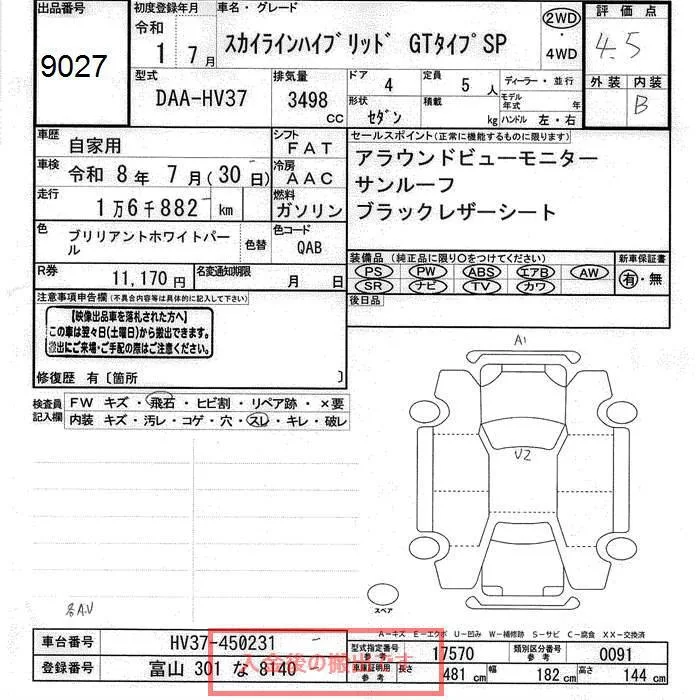 出品番号
9027
初度登録年月
令和
1年 7月
車名・グレード
スカイラインハイブリッド GTタイプSP
2WD
・
4WD
評価点
4.5
外装 内装
B
型式
DAA-HV37
排気量
3498
cc
ドア
4
定員
5人
形状
セダン
積載
kg
ディーラー・並行
モデル年式 年
ハンドル 左・右
車歴
自家用
シフト
FAT
車検
令和 8年 7月(30日)
冷房
AAC
走行
1万6千882 km
燃料
ガソリン
色
ブリリアントホワイトパール
色替
色コード
QAB
R券
11,170円
名変通知期限
月 日
セールスポイント(正常に機能するものに限ります)
アラウンドビューモニター
サンルーフ
ブラックレザーシート
装備品(純正品に限り○をつけてください)
PS PW ABS エアB AW
SR ナビ TV カワ
新車保証書
有・無
後日品
注意事項申告欄(不具合内容等は具体的に記入して下さい)
【映像出品車を落札された方へ】
この車は翌々日(土曜日)から搬出できます。
搬出にご来場・ご手配の際はご注意ください。
修復歴 有〔箇所 〕
検査員記入欄
FW キズ・飛石・ヒビ割・リペア跡・×要
内装 キズ・汚レ・コゲ・穴・スレ・キレ・破レ
A1
U2
各A.U
スペア
A-キズ E-エクボ U-凹み W-補修跡 S-サビ C-腐食 XX-交換済
車台番号
HV37-450231
型式指定番号
参考
17570
類別区分番号
参考
0091
登録番号
富山 301 な 8140
車庫証明用
参考
長さ 481cm
幅 182cm
高さ 144cm
入金後の搬出です